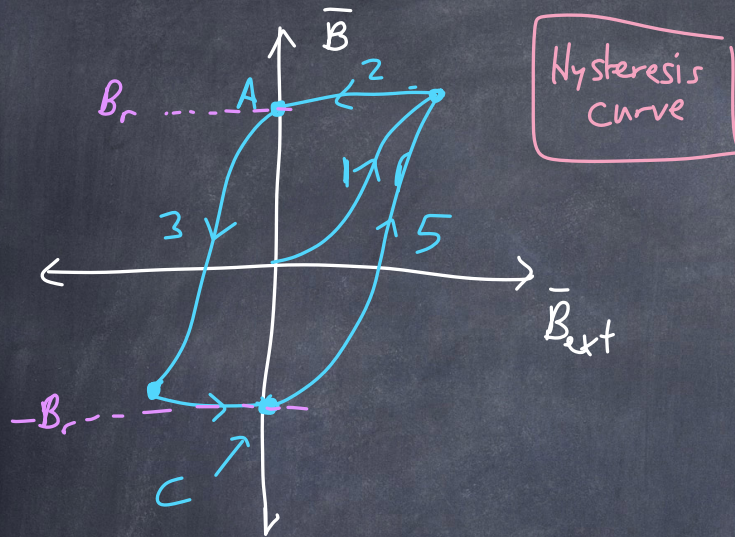 B̅
Hysteresis
Curve
2
A
Br
1
3
5
B̅ext
-Br
C